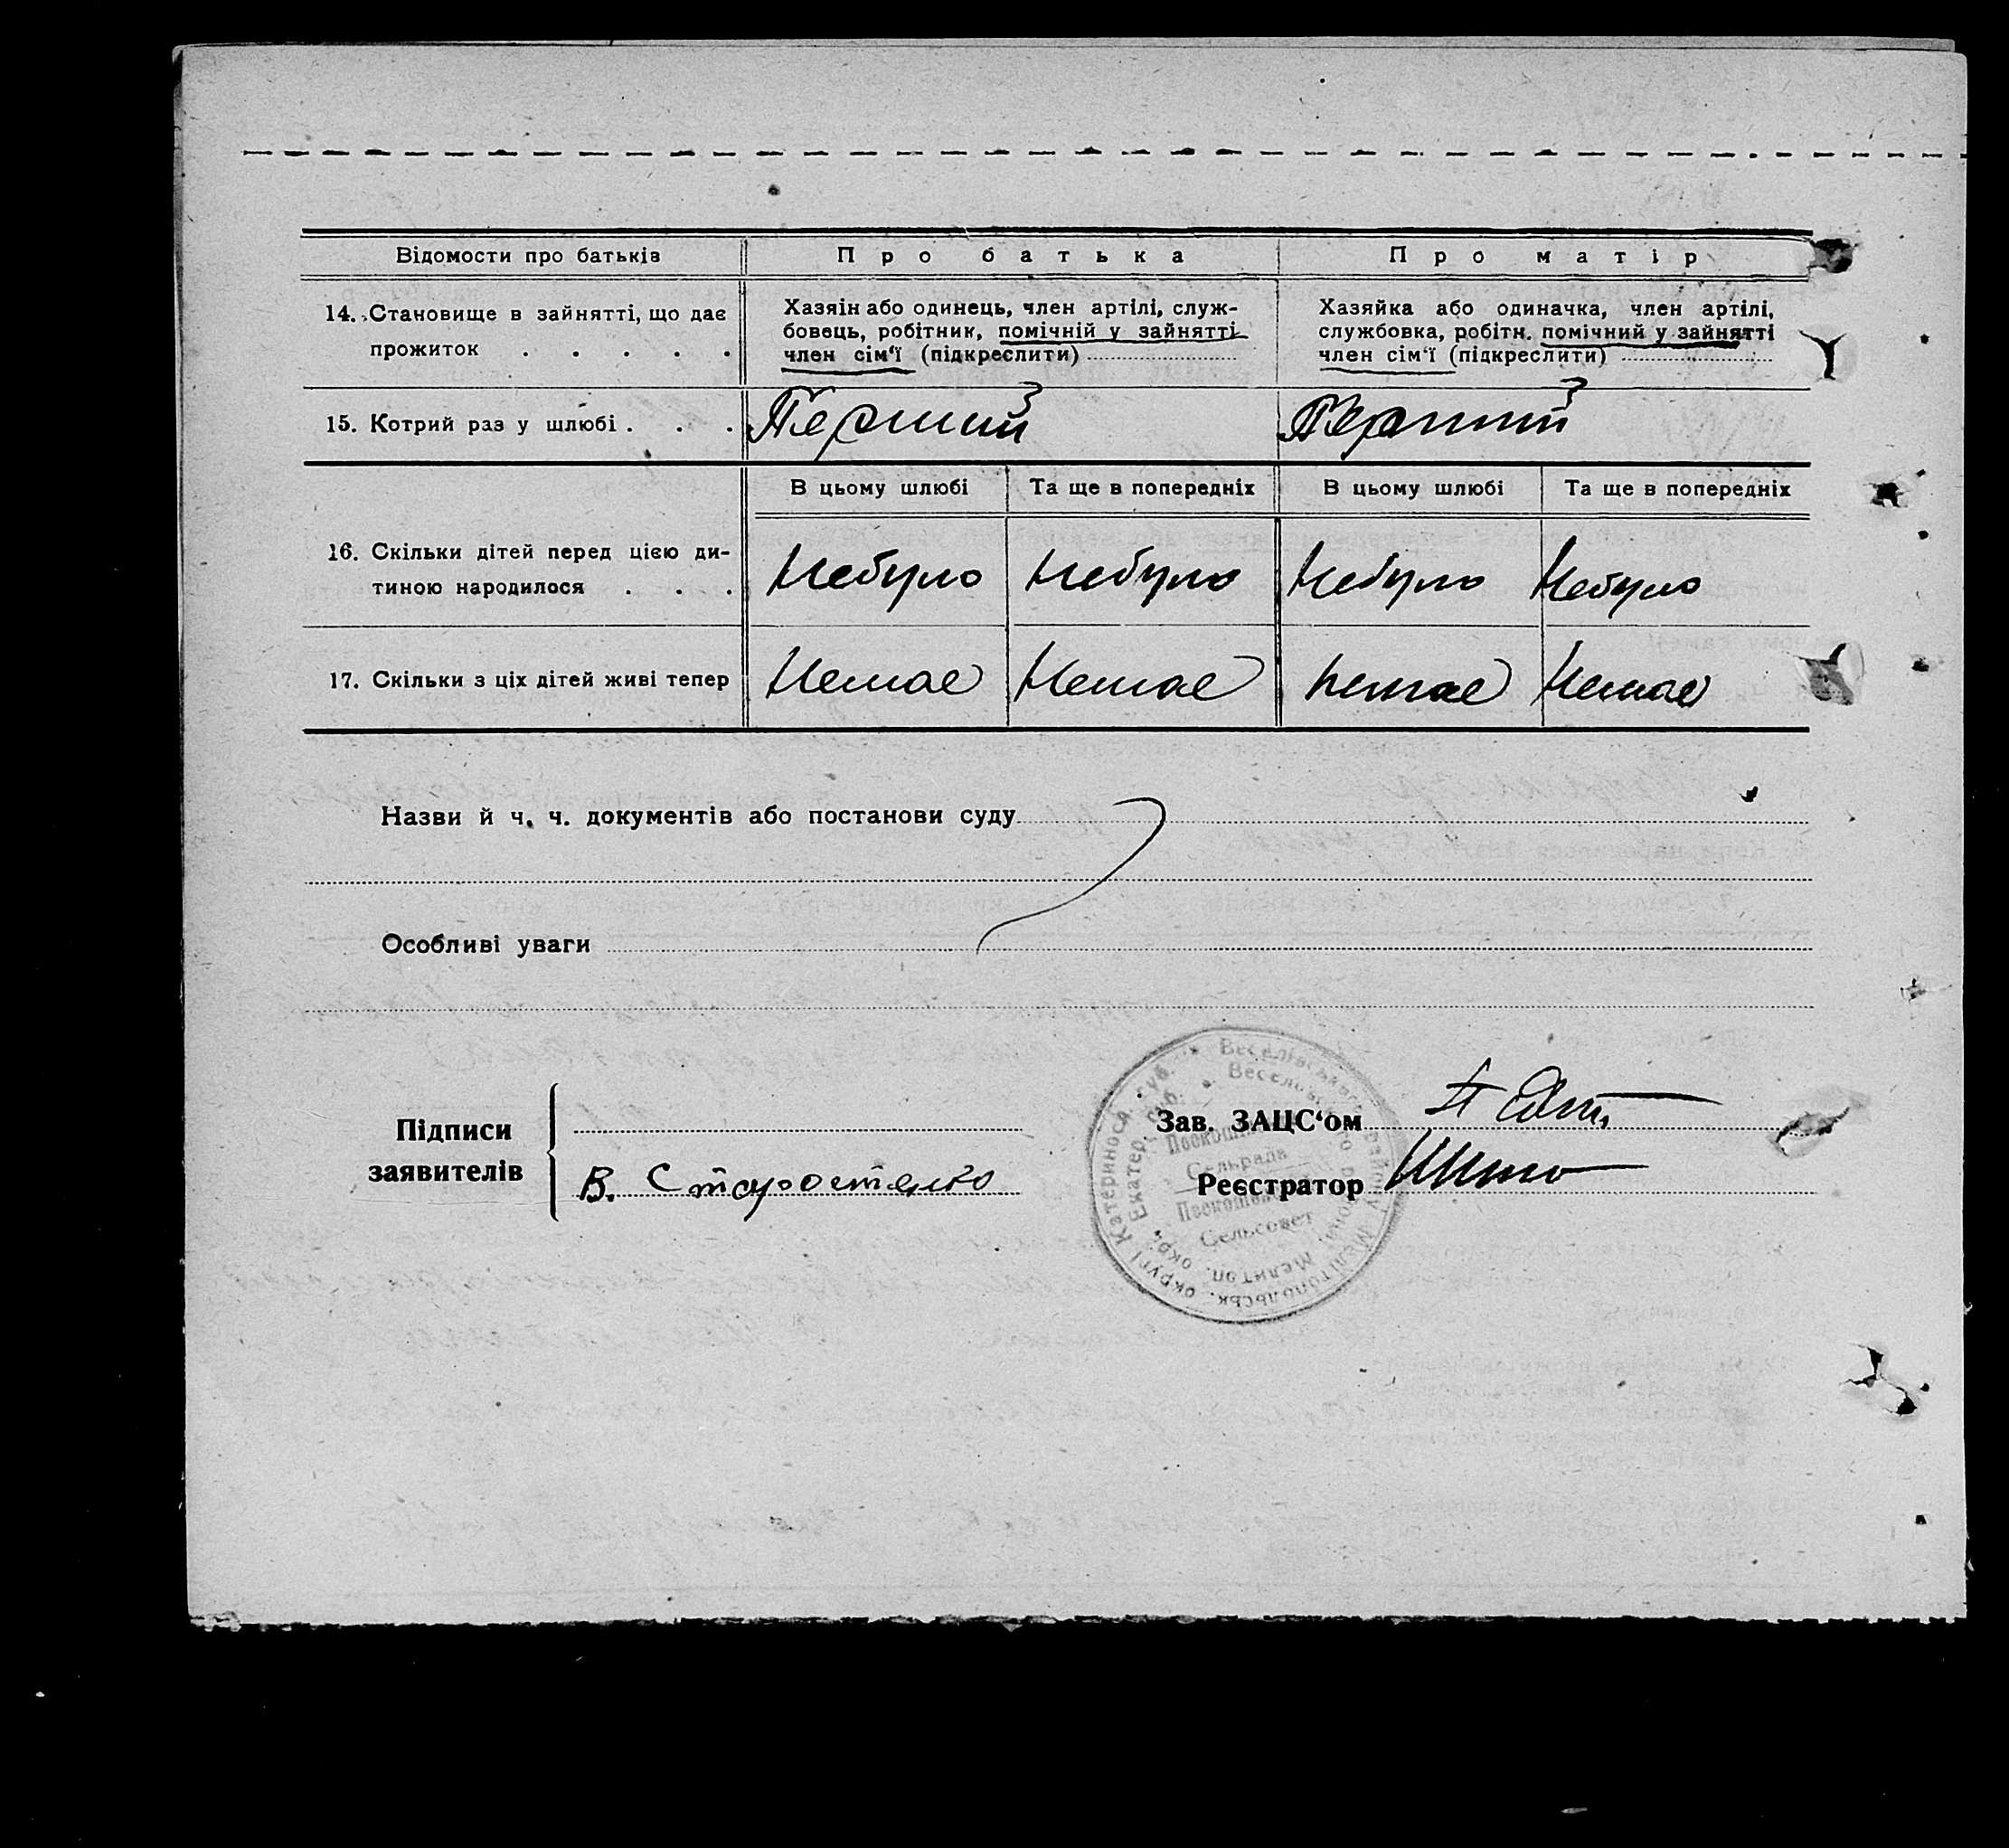 Відомости про батьків Про батька Про матір
14. Становище в зайнятті, що дає
прожиток . . . . .
Хазяїн або одинець, член артілі, служ-
бовець, робітник, помічній у зайнятті
член сім‘ї (підкреслити)
Хазяйка або одиначка, член артілі,
службовка, робітн. помічний у зайнятті
член сім‘ї (підкреслити)
15. Котрий раз у шлюбі . . . Перший Перший
В цьому шлюбі Та ще в попередніх В цьому шлюбі Та ще в попередніх
16. Скільки дітей перед цією ди-
тиною народилося . . .
Небуло Небуло Небуло Небуло
17. Скільки з ціх дітей живі тепер Немає Немає Немає Немає
Назви й ч. ч. документів або постанови суду
Особливі уваги
Підписи
заявителів
В. Старостенко
Зав. ЗАЦС‘ом
Реєстратор
Веселівського району Мелітопольськ. округі Катеринослав. губ.
Сельрада
Сельсовет